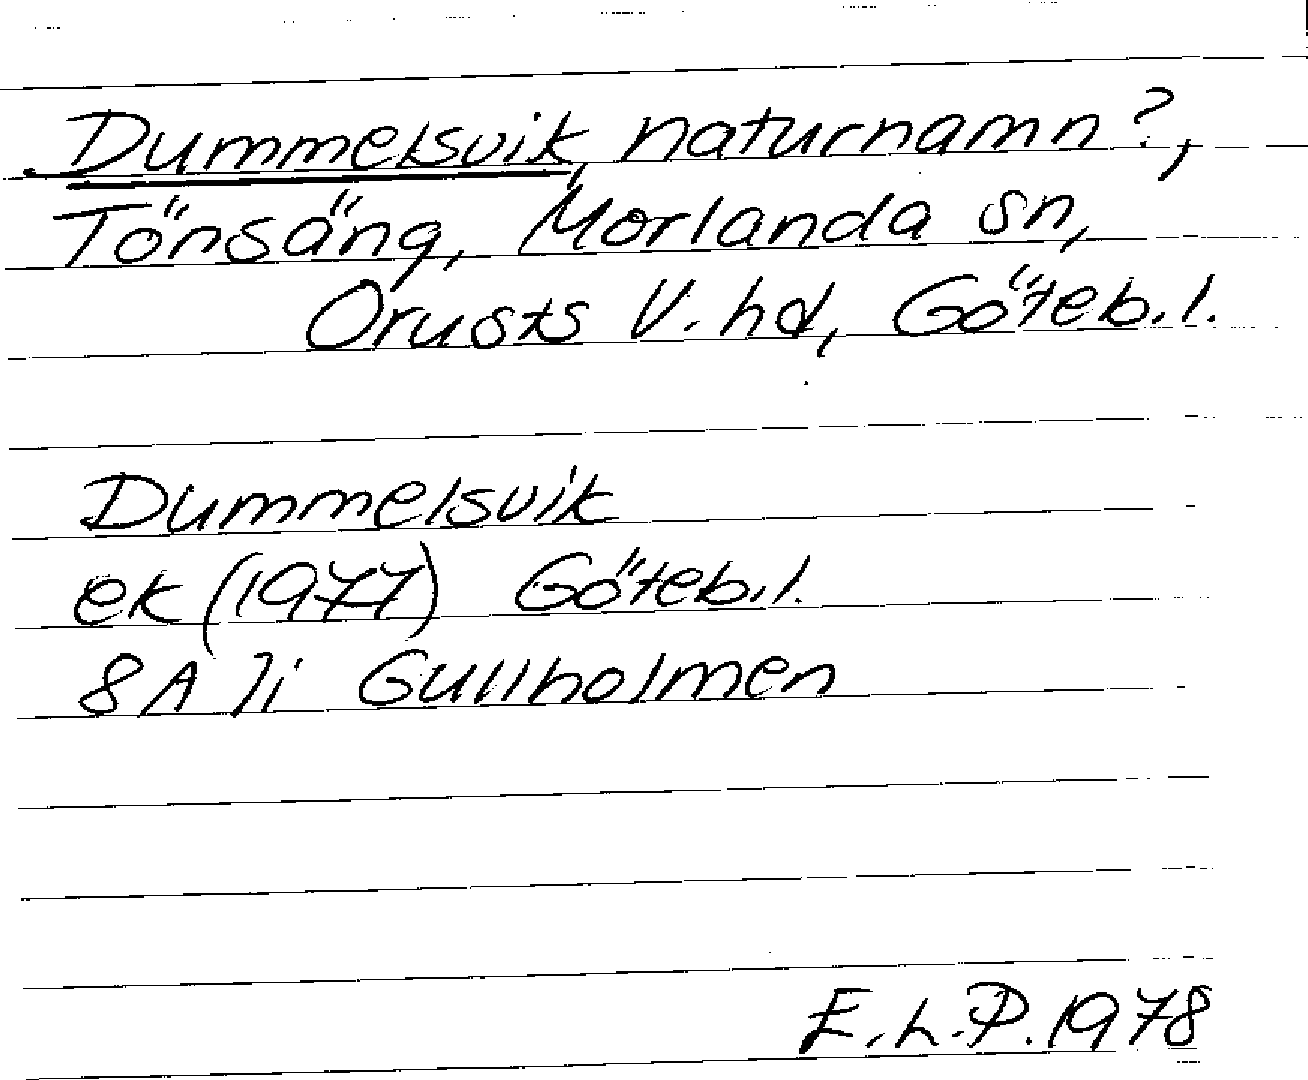 Dummelsvik, naturnamn?,
Tönsäng, Morlanda sn,
Orusts V. hd, Göteb.l.
Dummelsvik
ek (1977) Göteb.l.
8A 7i Gullholmen
E.L.P. 1978